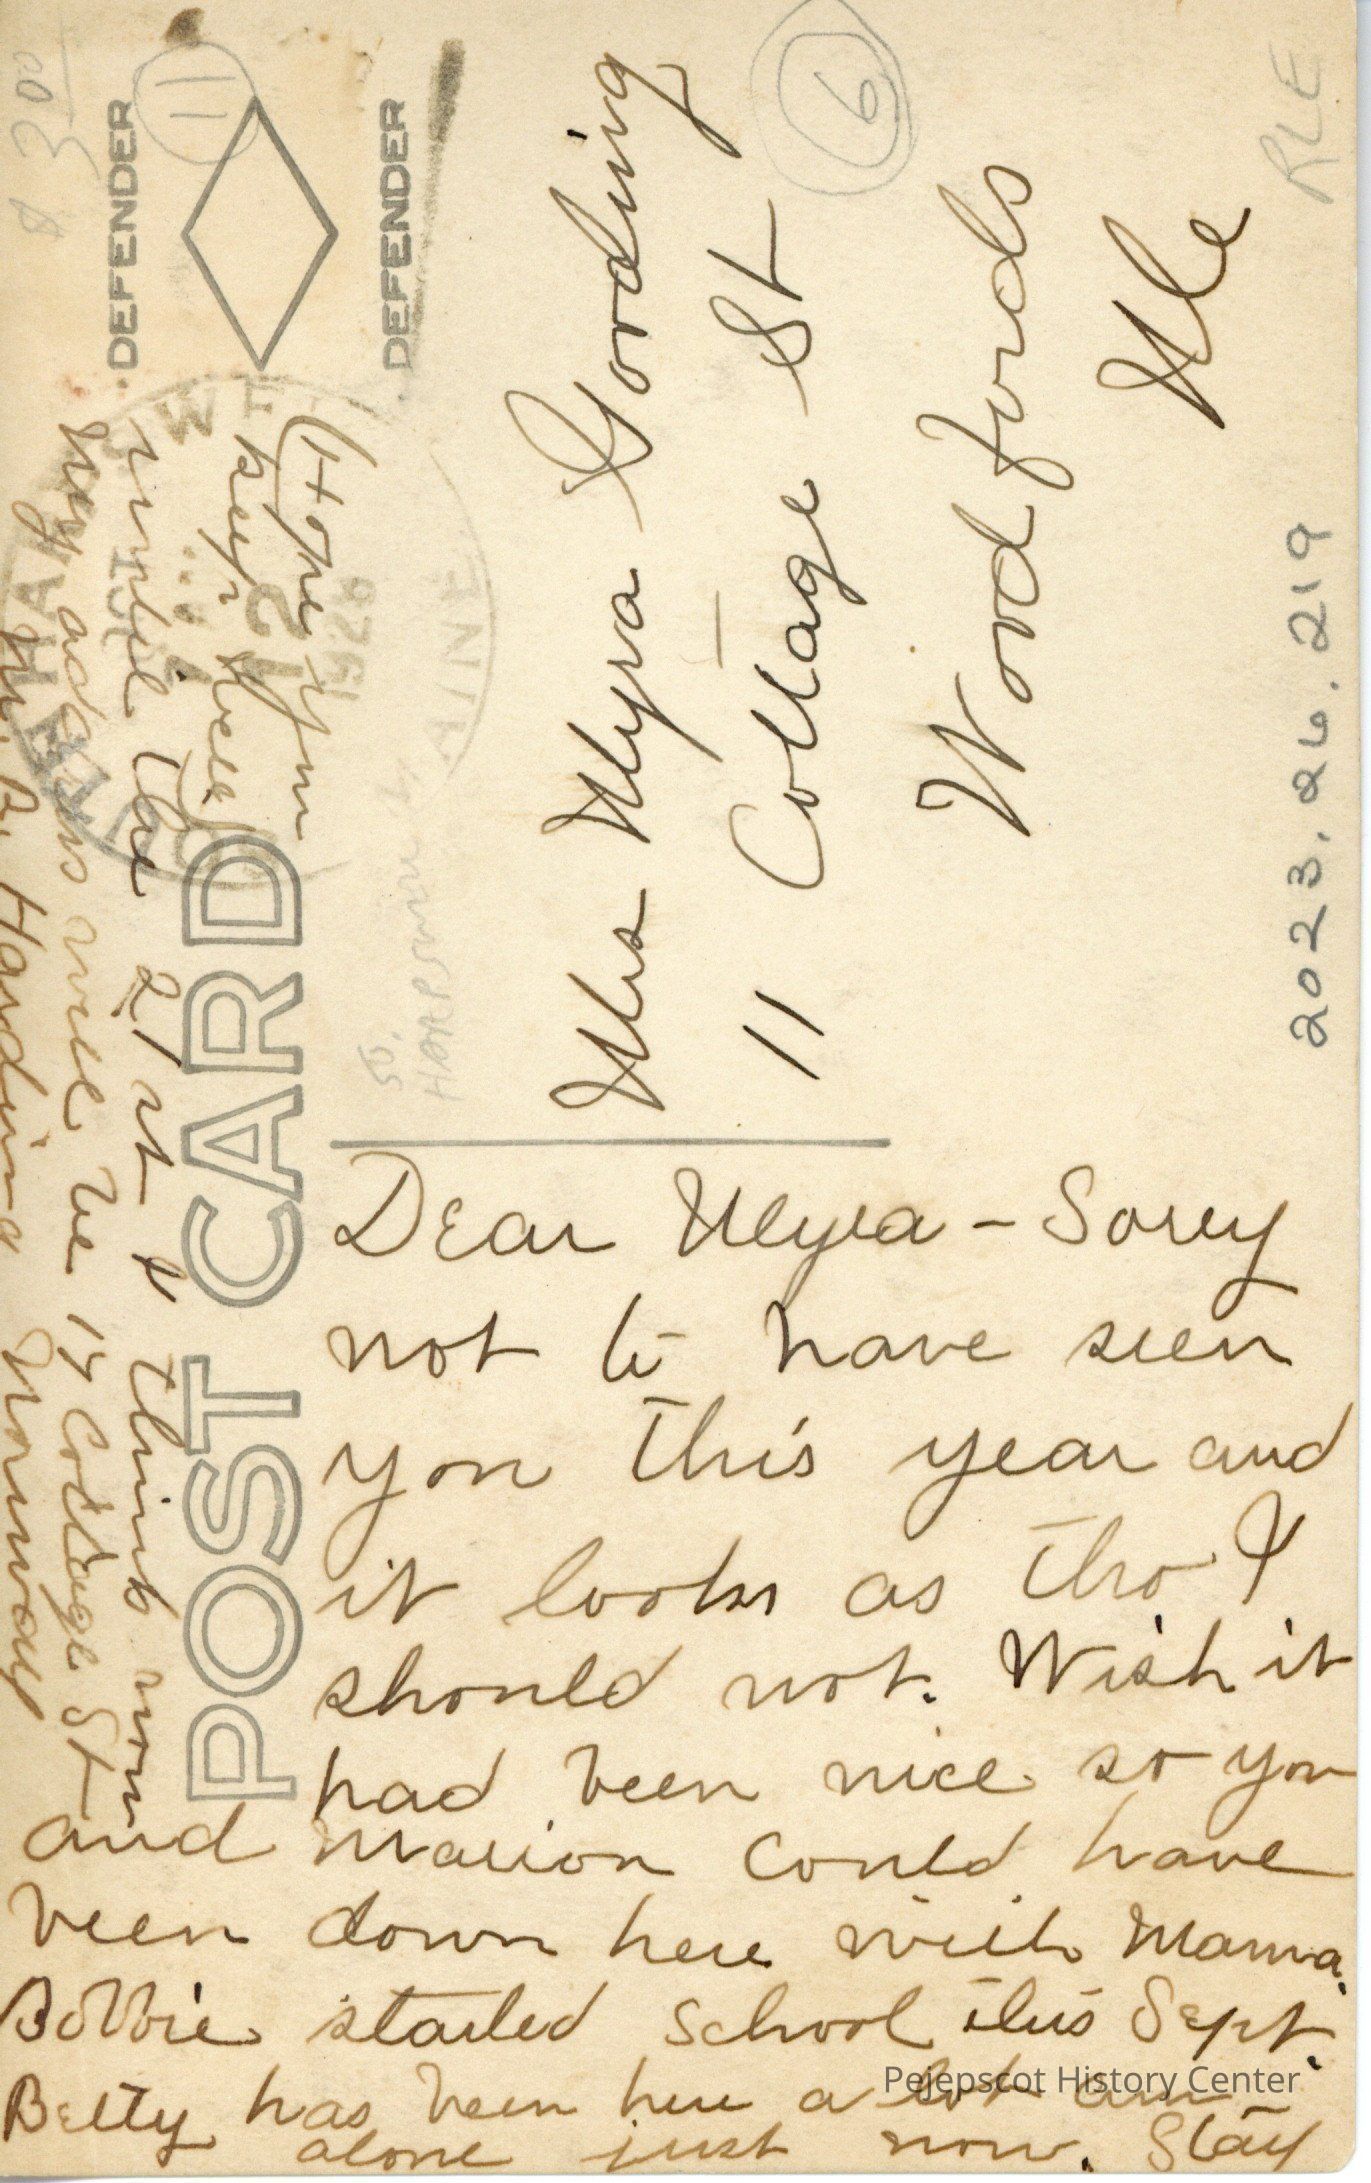 Dear Myra – Sorry
not to have seen
you this year and
it looks as tho I
should not. Wish it
had been nice so you
and Marion could have
been down here with Mama.
Bobbie started school this Sept.
Betty has been here a lot am
alone just now. Stay
until the 21st I think now
My address will be 14 Cottage St
Norway
M. B. Harding
(Hope you
keep well
POST CARD
DEFENDER
DEFENDER
SOUTH HARPSWELL
12
192
MAINE
Mrs Myra Gooding
11 Cottage St
Woodfords
Me
So.
HARPSWELL
11
6
3 00
RLE
2023.26.219
Pejepscot History Center